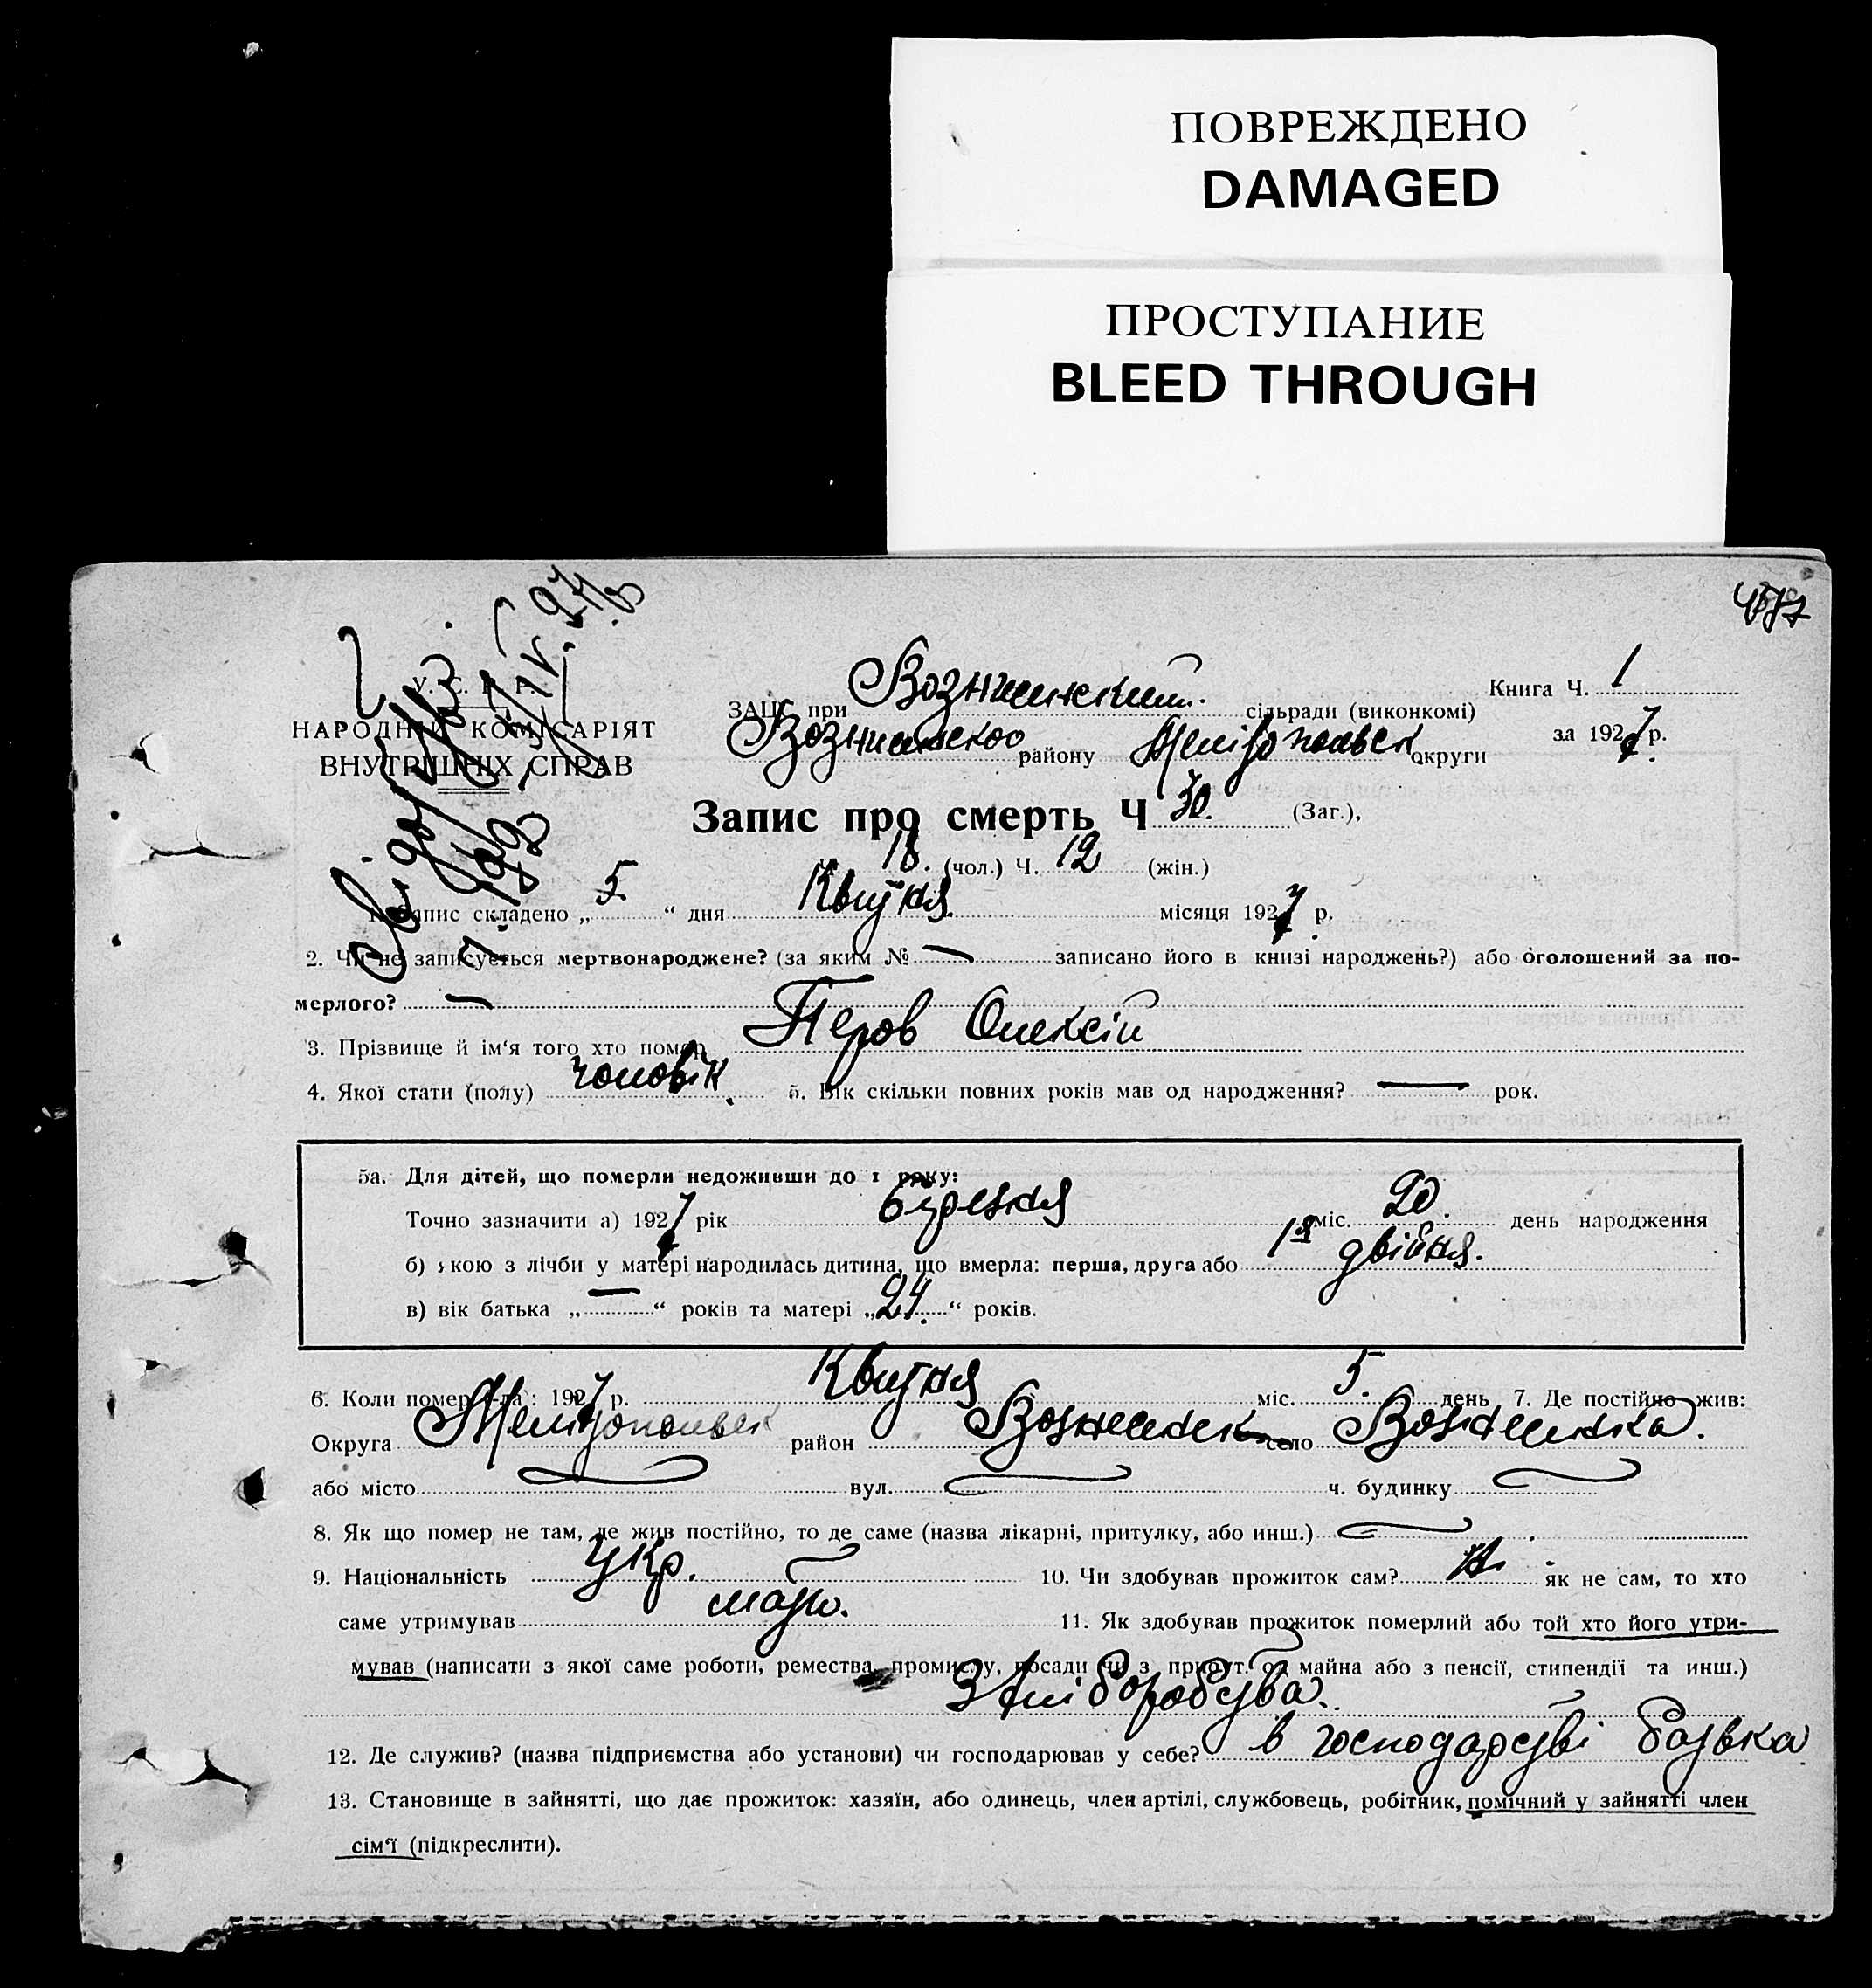 ПОВРЕЖДЕНО
DAMAGED
ПРОСТУПАНИЕ
BLEED THROUGH
У. С. Р. Р.
НАРОДНІЙ КОМІСАРІЯТ
ВНУТРІШНІХ СПРАВ
ЗАЦС при сільради (виконкомі)
Книга Ч. 1
району округи
за 1927 р.
Запис про смерть Ч 30. (Заг.),
18. (чол.) Ч. 12 (жін.)
1. Запис складено „ 5 “ дня Квітня місяця 1927 р.
2. Чи не записується мертвонароджене? (за яким № — записано його в книзі народжень?) або оголошений за по-
мерлого? —
3. Прізвище й ім‘я того хто помер Перов Олексій
4. Якої стати (полу) чоловік. 5. Вік скільки повних років мав од народження? — рок.
5а. Для дітей, що померли недоживши до 1 року:
Точно зазначити а) 1927 рік березня міс. 20. день народження
б) якою з лічби у матері народилась дитина, що вмерла: перша, друга або 1я двійня.
в) вік батька „ — “ років та матері „ 24. “ років.
6. Коли помер (-ла): 1927 р. Квітня міс. 5. день 7. Де постійно жив:
Округа Мелітопольск район Вознесенск село Вознесенка.
або місто вул. ч. будинку
8. Як що помер не там, де жив постійно, то де саме (назва лікарні, притулку, або инш.)
9. Національність Укр. 10. Чи здобував прожиток сам? Ні як не сам, то хто
саме утримував мати. 11. Як здобував прожиток померлий або той хто його утри-
мував (написати з якої саме роботи, ремества, промислу, посади чи з прибут. од майна або з пенсії, стипендії та инш.)
З хліборобства.
12. Де служив? (назва підприємства або установи) чи господарював у себе? в господарстві батька
13. Становище в зайнятті, що дає прожиток: хазяїн, або одинець, член артілі, службовець, робітник, помічний у зайнятті член
сім‘ї (підкреслити).